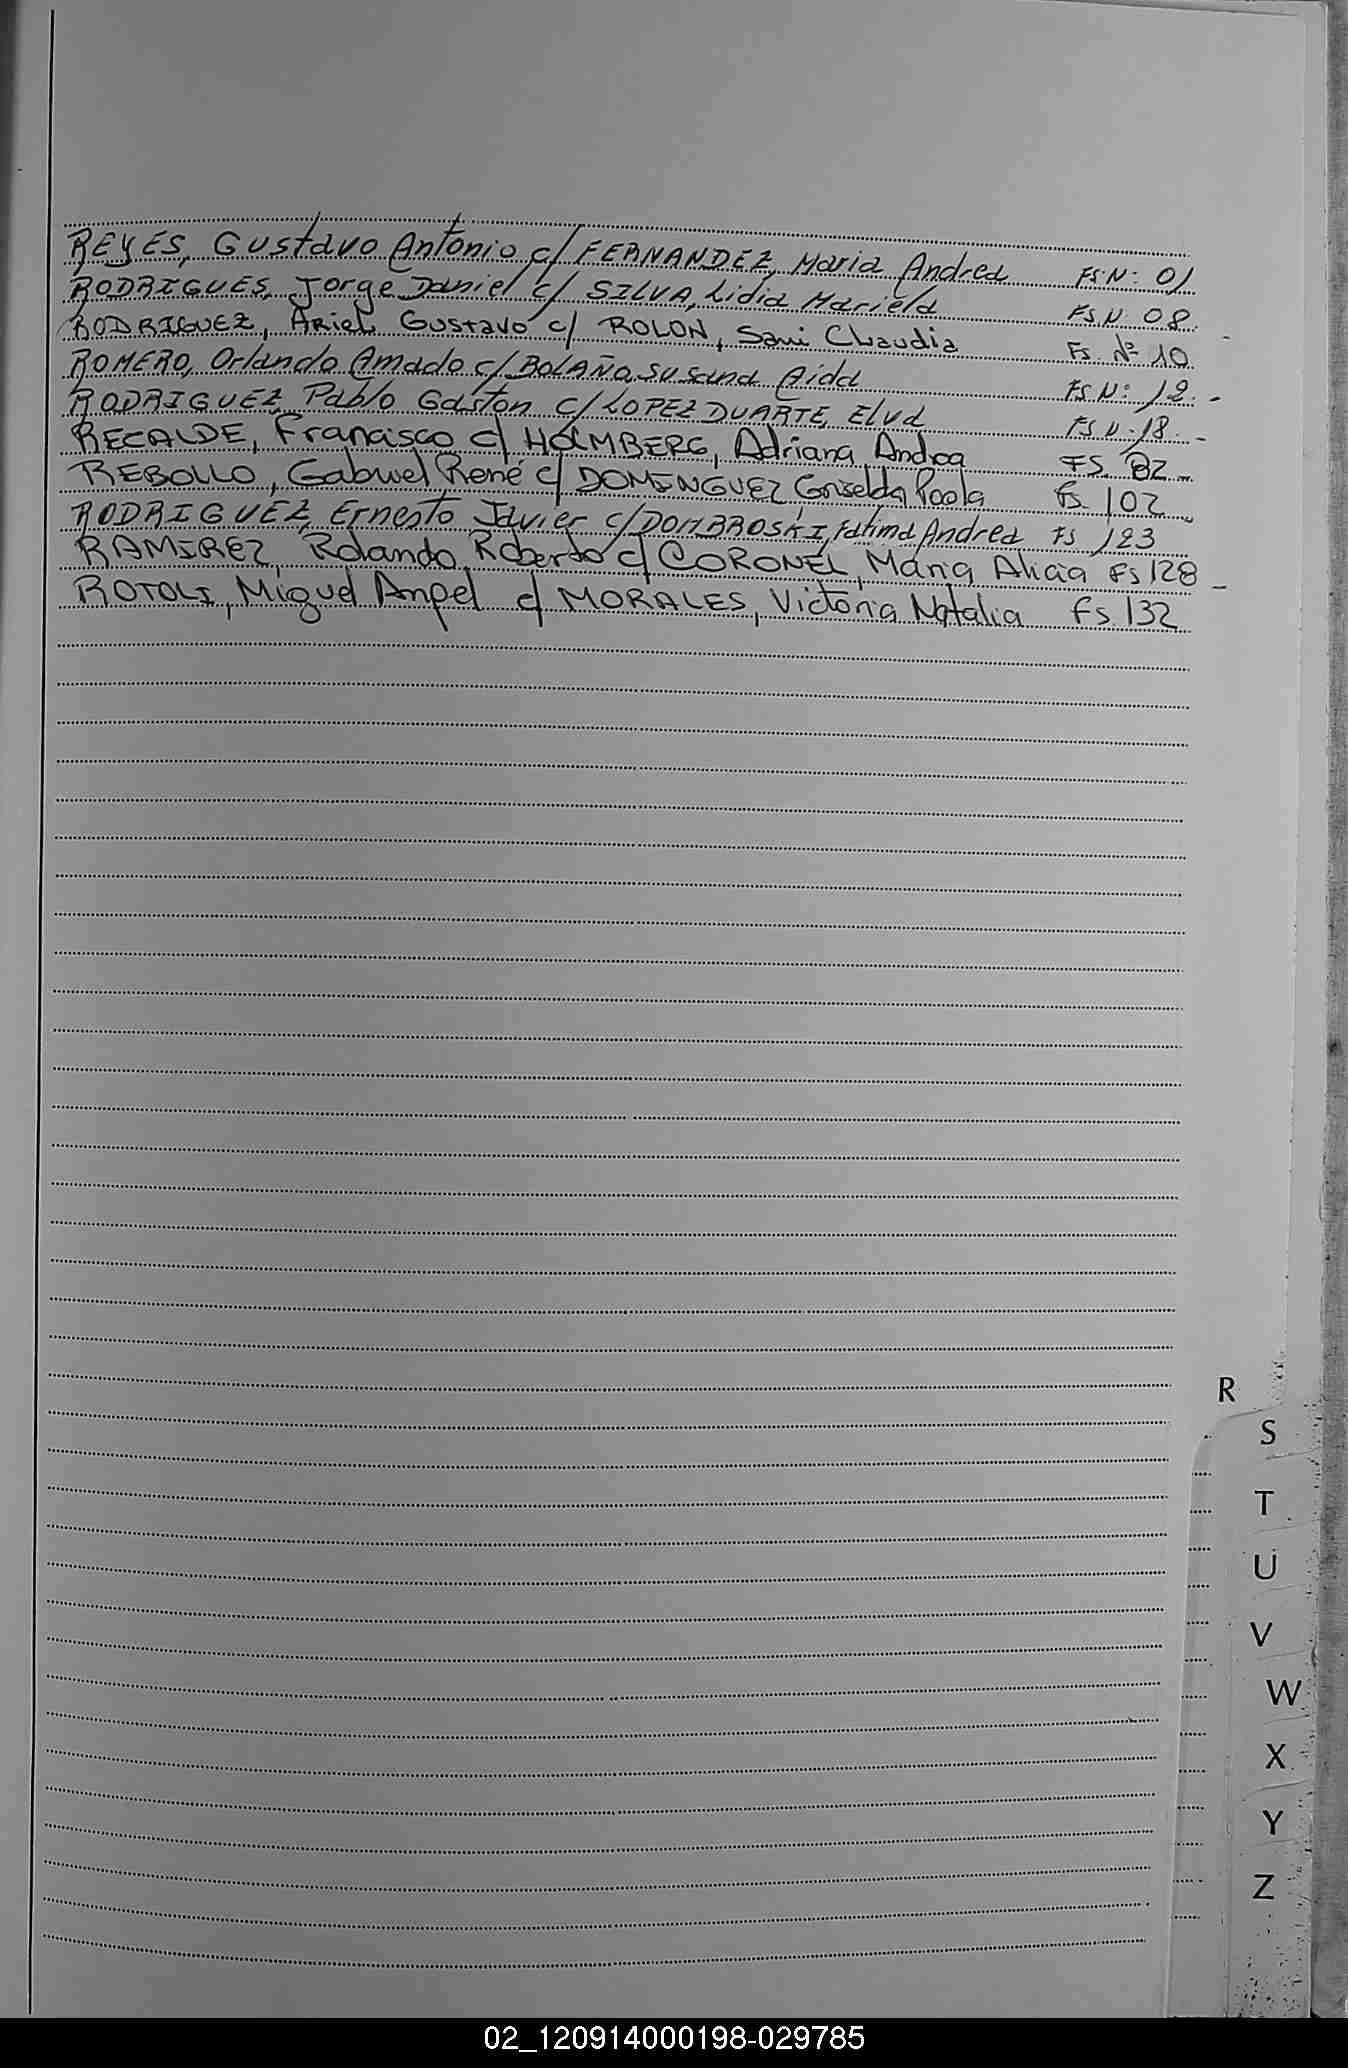 REYES, Gustavo Antonio c/ FERNANDEZ, Maria Andrea FS.N: 01
RODRIGUES, Jorge Daniel c/ SILVA, Lidia Mariela FS N 08.
RODRIGUEZ, Ariel Gustavo c/ ROLON, Sami Claudia Fs. Nº 10
ROMERO, Orlando Amado c/ BOLAÑO, Susana Aida FS N: 12. -
RODRIGUEZ, Pablo Gaston c/ LOPEZ DUARTE, Elva FS N. 18. -
RECALDE, Francisco c/ HOLMBERG, Adriana Andrea FS. 82
REBOLLO, Gabriel René c/ DOMINGUEZ Griselda Paola Fs. 102
RODRIGUEZ, Ernesto Javier c/ DOMBROSKI, Fatima Andrea FS 123
RAMIREZ, Rolando Roberto c/ CORONEL, Maria Alicia Fs 128 -
ROTOLI, Miguel Angel c/ MORALES, Victoria Natalia Fs. 132
R
S
T
U
V
W
X
Y
Z
02_120914000198-029785